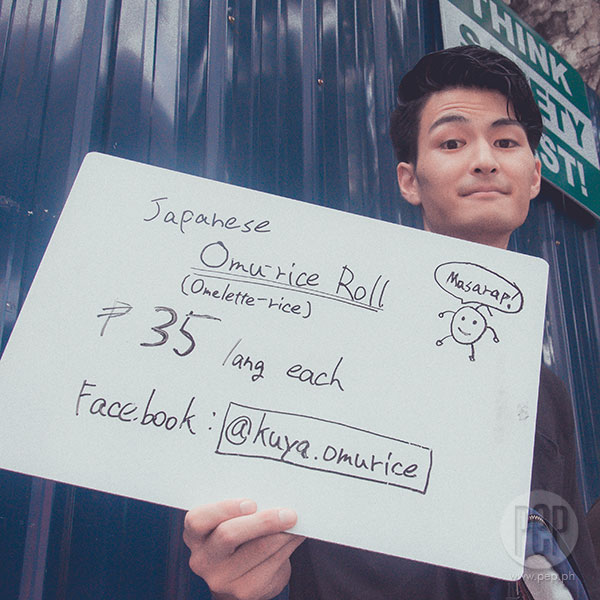 THINK
SAFETY
FIRST!
Japanese
Omu-rice Roll
(Omelette-rice)
₱35 lang each
Masarap!
Facebook : @kuya.omurice
PEP
www.pep.ph